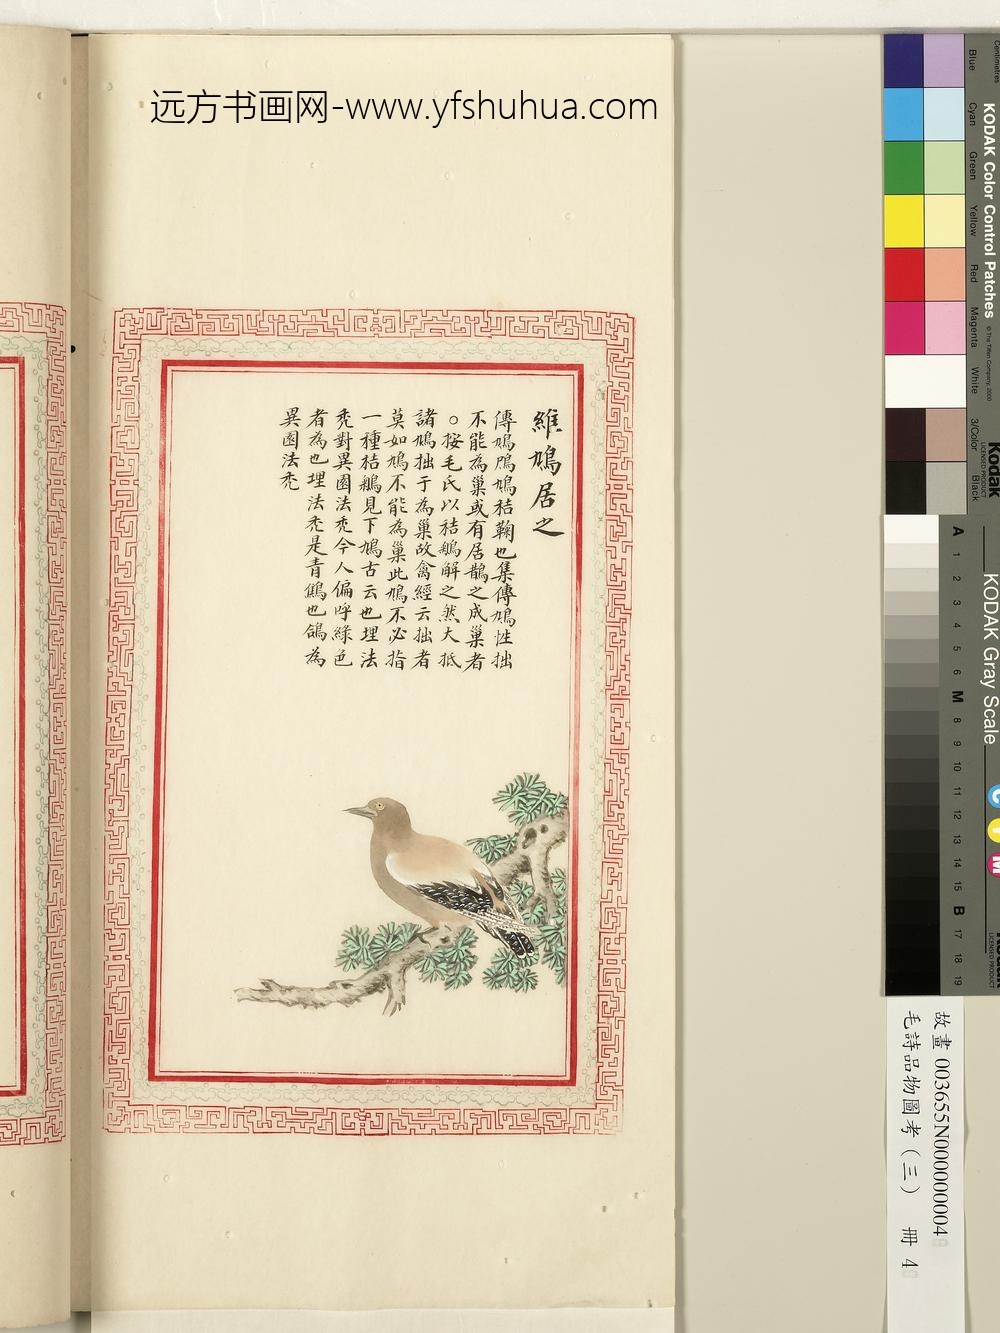 远方书画网-www.yfshuhua.com
維鳩居之
傳鳩鳲鳩秸鞠也集傳鳩性拙
不能為巢或有居鵲之成巢者
○按毛氏以秸鵴解之然大抵
諸鳩拙于為巢故禽經云拙者
莫如鳩不能為巢此鳩不必指
一種秸鵴見下鳩古云也埋法
禿對異圉法禿今人偏呼綠色
者為也埋法禿是青鷦也鴿為
異圉法禿
Centimetres
Blue
Cyan
Green
Yellow
Red
Magenta
White
3/Color
Black
KODAK Color Control Patches
© The Tiffen Company, 2000
LICENSED PRODUCT
Kodak
KODAK Gray Scale
A 1 2 3 4 5 6 M 8 9 10 11 12 13 14 15 B 17 18 19
C
Y
M
LICENSED PRODUCT
故畫 003655N000000004
毛詩品物圖考（三） 冊 4